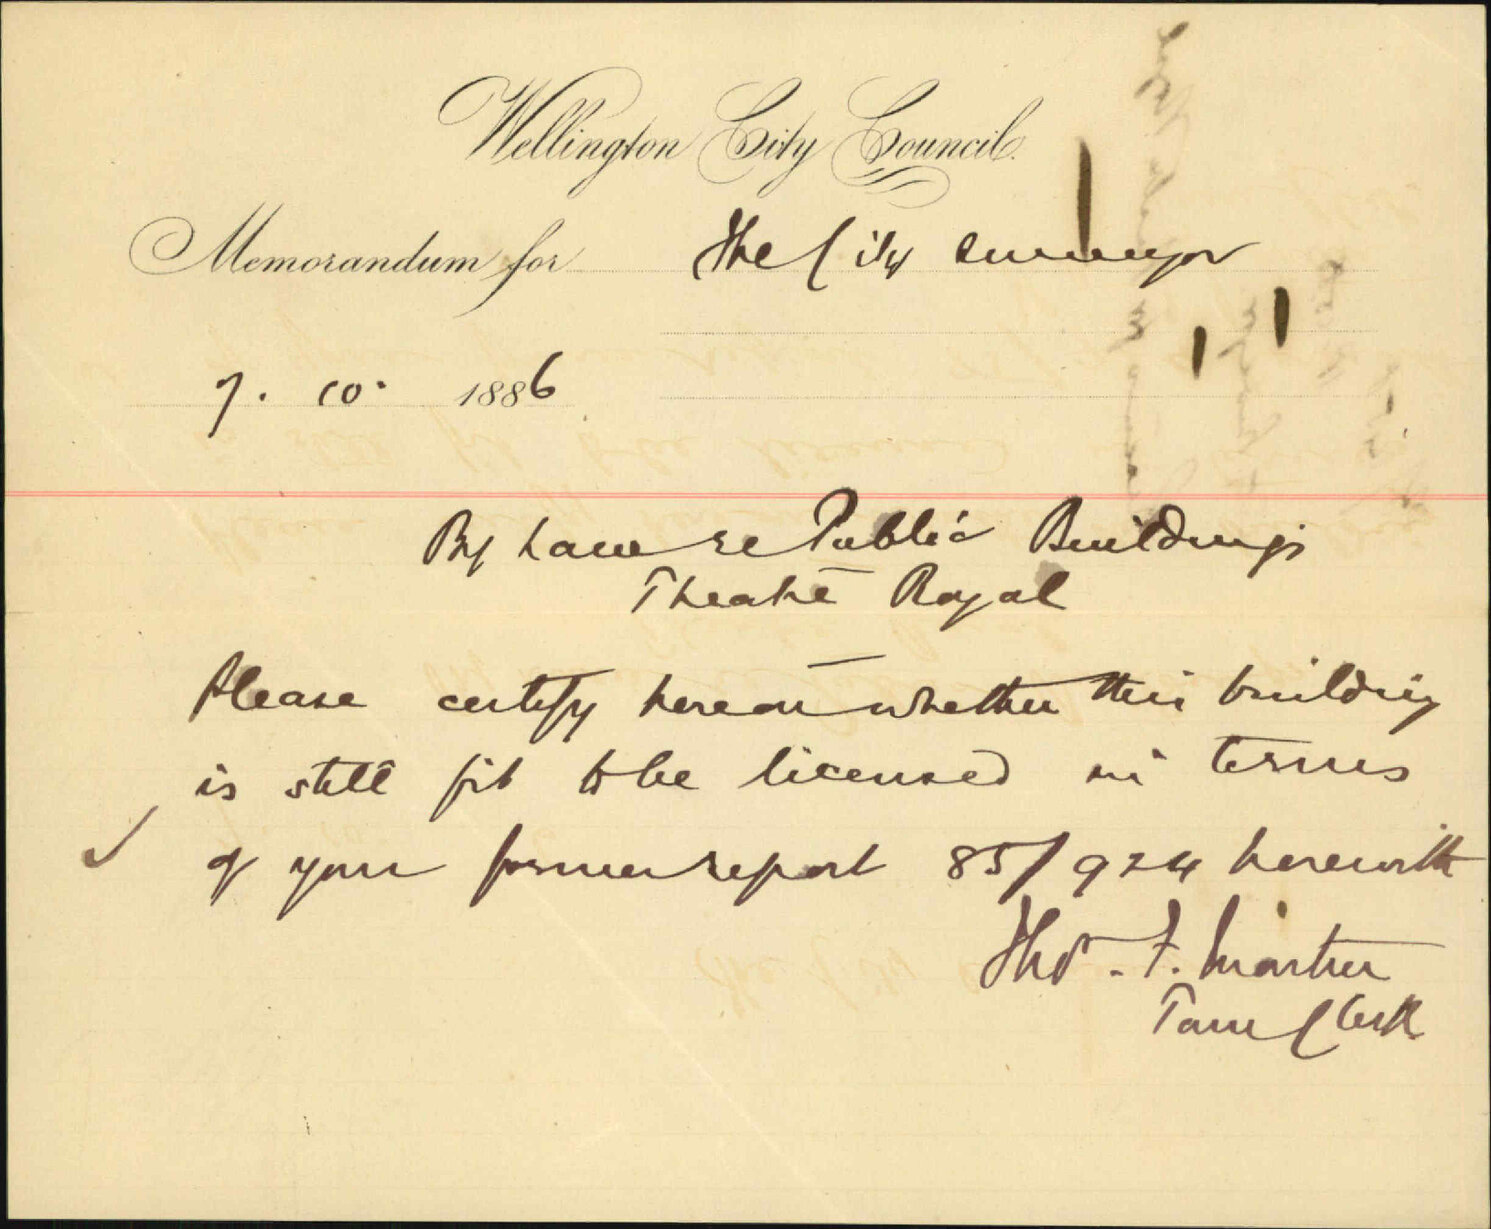 Wellington City Council.
Memorandum for The City Surveyor
7. 10. 1886
By Laws re Public Buildings
Theatre Royal
Please certify hereon whether this building
is still fit to be licensed in terms
of your former report 85/924 herewith
Thos. F. Martin
Town Clerk